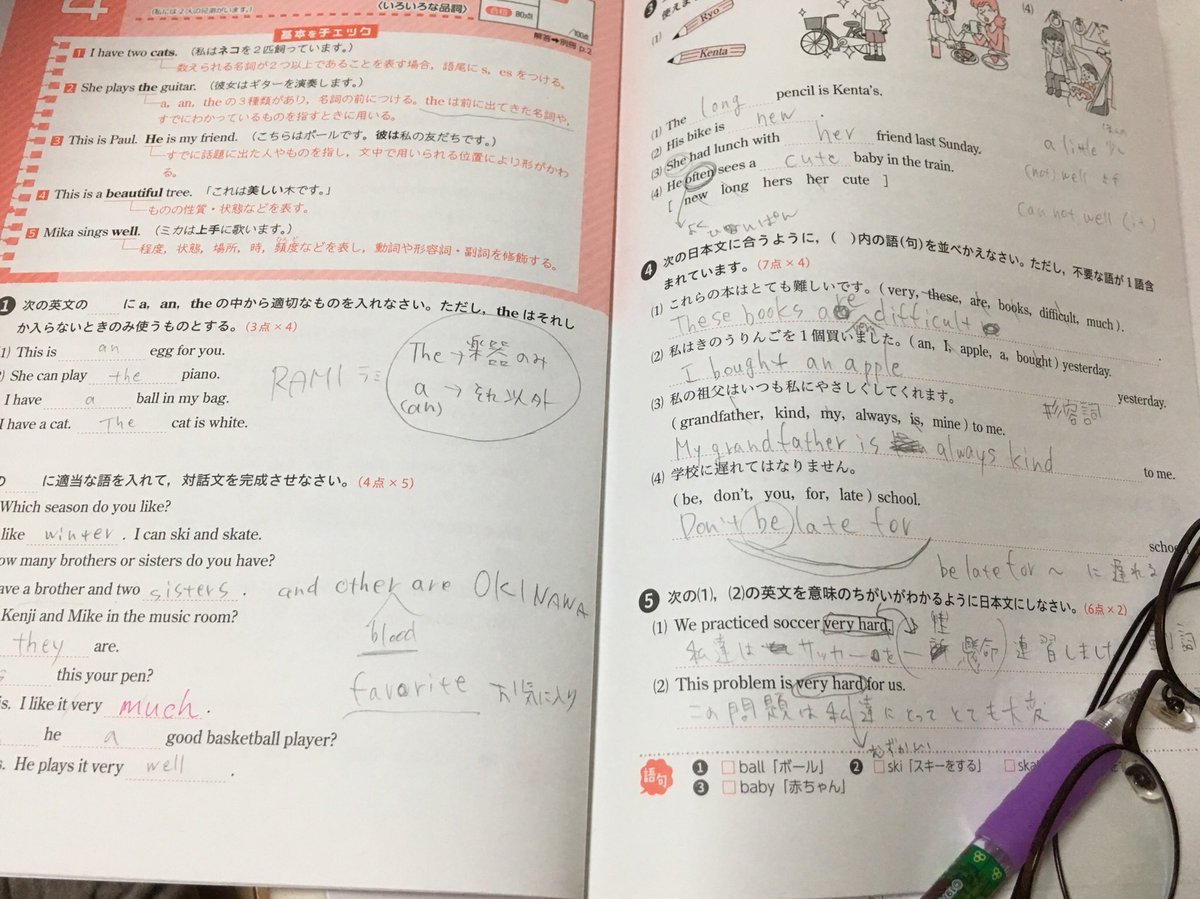 (私には2人の兄弟がいます。)
〈いろいろな品詞〉
合格 80点
/100点
解答➔別冊 p.2
基本をチェック
1 I have two cats. (私はネコを2匹飼っています。)
数えられる名詞が2つ以上であることを表す場合, 語尾に s, es をつける。
2 She plays the guitar. (彼女はギターを演奏します。)
a, an, the の3種類があり, 名詞の前につける。the は前に出てきた名詞や,
すでにわかっているものを指すときに用いる。
3 This is Paul. He is my friend. (こちらはポールです。彼は私の友だちです。)
すでに話題に出た人やものを指し, 文中で用いられる位置により形がかわ
る。
4 This is a beautiful tree. 「これは美しい木です。」
ものの性質・状態などを表す。
5 Mika sings well. (ミカは上手に歌います。)
程度, 状態, 場所, 時, 頻度などを表し, 動詞や形容詞・副詞を修飾する。
ひんど
1 次の英文の に a, an, the の中から適切なものを入れなさい。ただし, the はそれし
か入らないときのみ使うものとする。(3点×4)
1) This is an egg for you.
) She can play the piano.
I have a ball in my bag.
I have a cat. The cat is white.
RAMI ラミ
The → 楽器のみ
a → それ以外
(an)
の に適当な語を入れて, 対話文を完成させなさい。(4点×5)
Which season do you like?
like winter. I can ski and skate.
ow many brothers or sisters do you have?
ave a brother and two sisters.
and other are OKINAWA
blood
Kenji and Mike in the music room?
they are.
this your pen?
favorite お気に入り
is. I like it very much.
he a good basketball player?
s. He plays it very well.
3
使え
(1)
Ryo
Kenta
(4)
(1) The long pencil is Kenta's.
(2) His bike is new.
(3) She had lunch with her friend last Sunday.
(4) He often sees a cute baby in the train.
[ new long hers her cute ]
a little
(not) well
can not well (it)
4 次の日本文に合うように, ( )内の語(句)を並べかえなさい。ただし, 不要な語が1語含
まれています。(7点×4)
(1) これらの本はとても難しいです。( very, these, are, books, difficult, much ).
These books are difficult
(2) 私はきのうりんごを1個買いました。( an, I, apple, a, bought ) yesterday.
I bought an apple yesterday.
(3) 私の祖父はいつも私にやさしくしてくれます。
形容詞
( grandfather, kind, my, always, is, mine ) to me.
My grandfather is always kind to me.
(4) 学校に遅れてはなりません。
( be, don't, you, for, late ) school.
Don't be late for schoo
be late for ~ に遅れる
5 次の(1), (2)の英文を意味のちがいがわかるように日本文にしなさい。(6点×2)
(1) We practiced soccer very hard.
私達は サッカーを 一 懸命 練習しまし
(2) This problem is very hard for us.
この問題は私達にとってとても大変
むずかしい
語句
1 □ ball「ボール」 2 □ ski「スキーをする」 □ ska
3 □ baby「赤ちゃん」